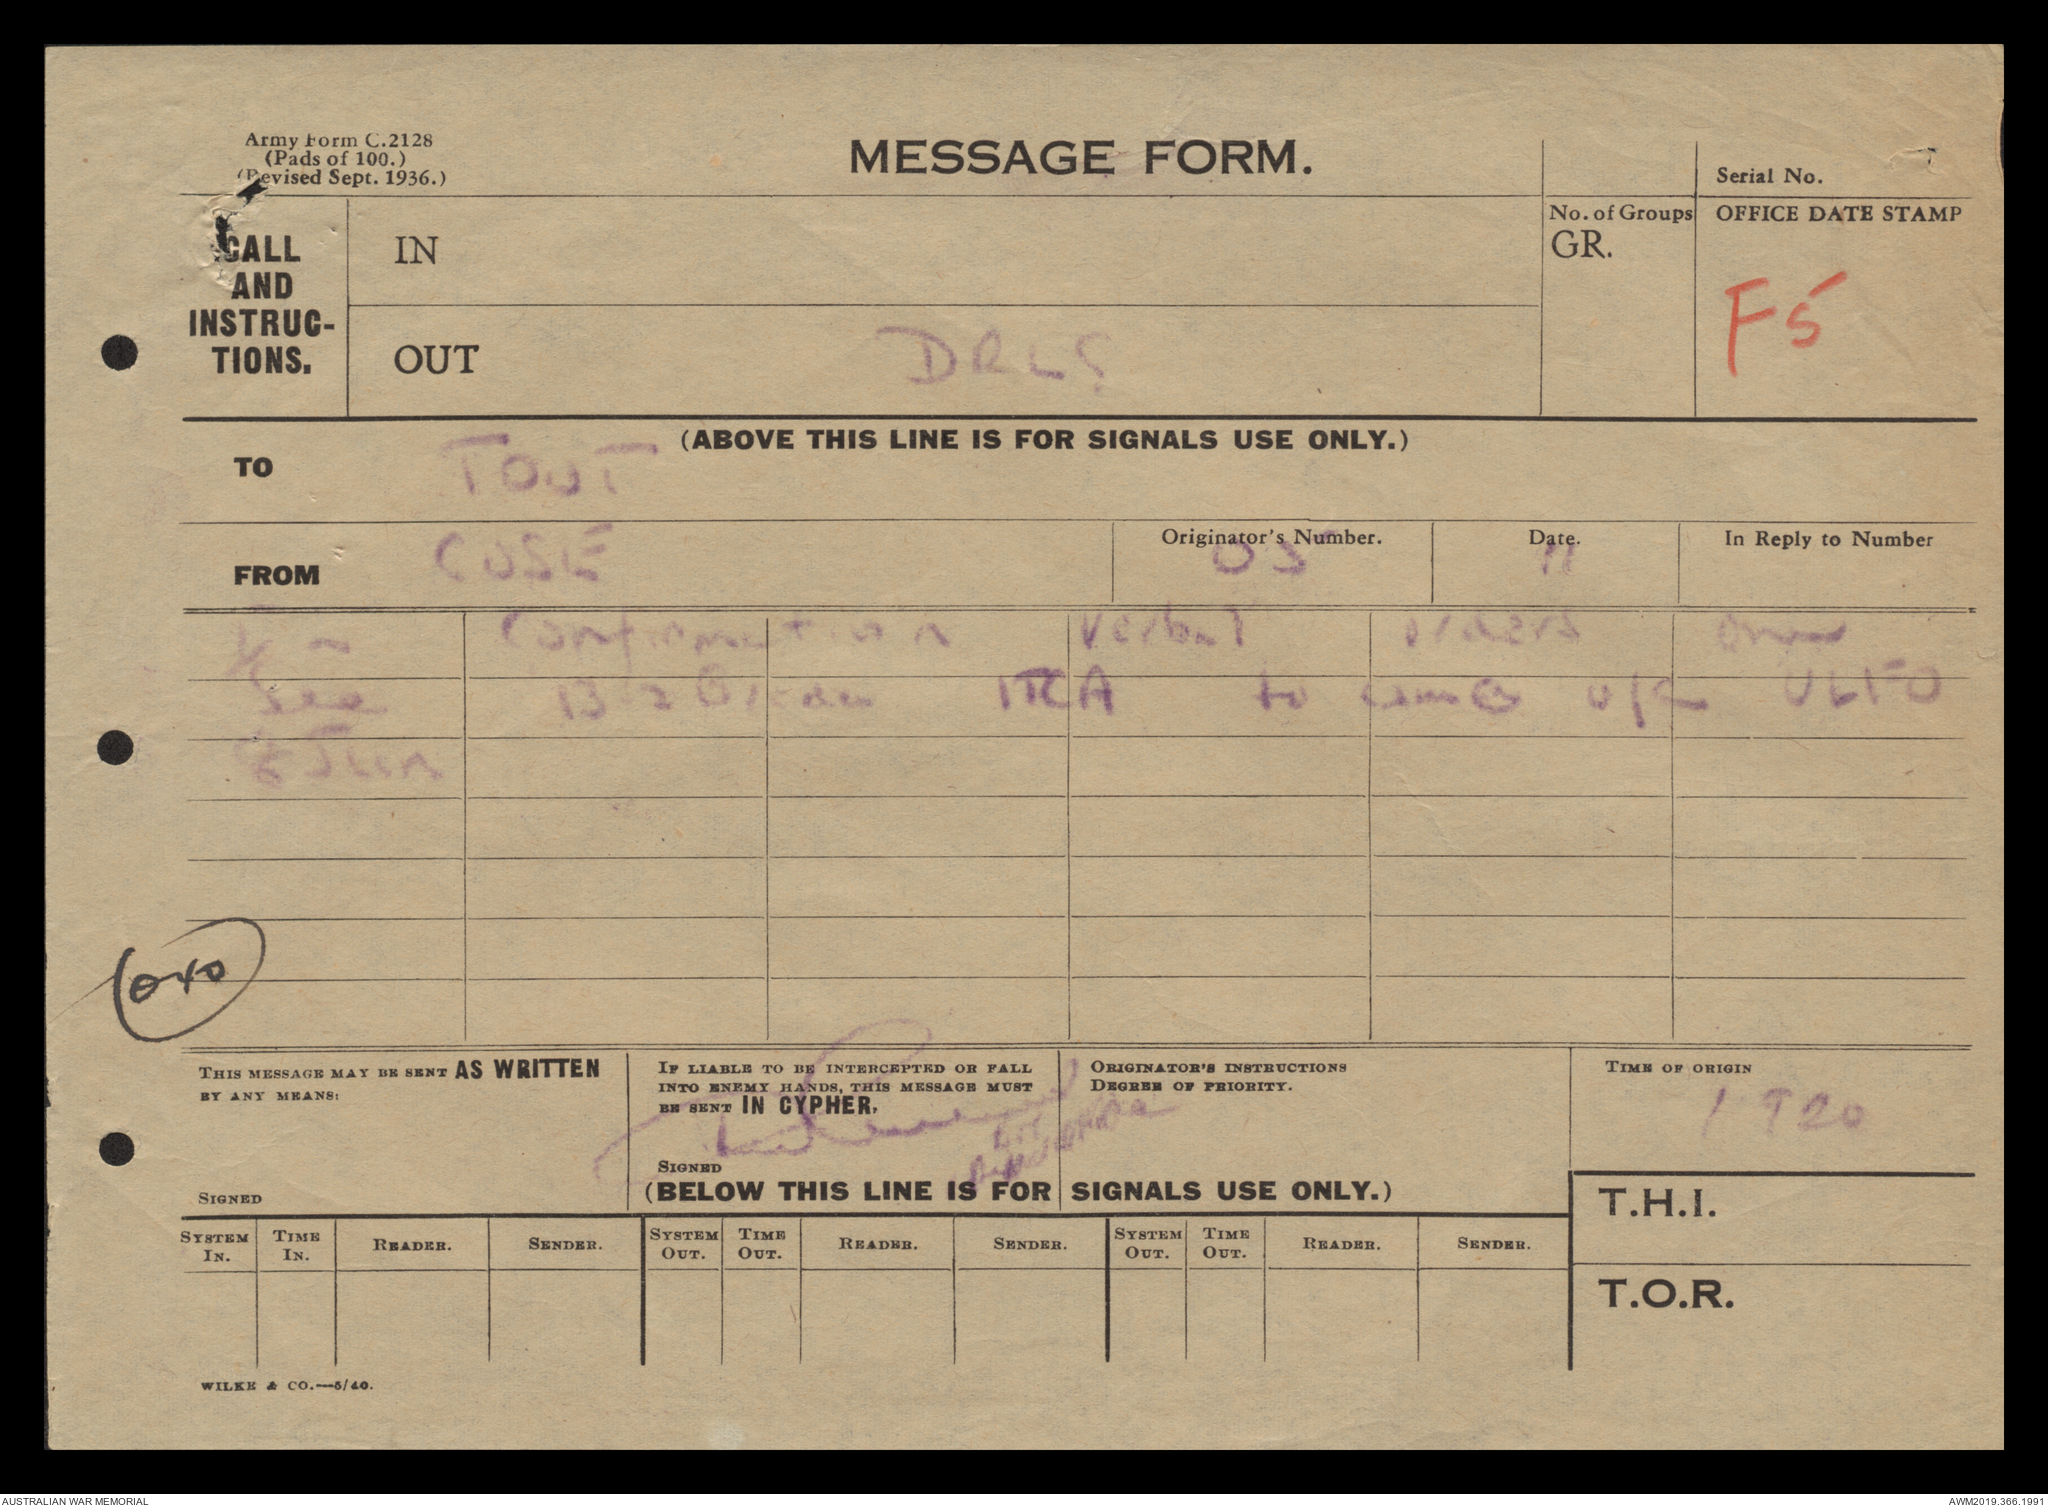 Army Form C.2128
(Pads of 100.)
(Revised Sept. 1936.)
MESSAGE FORM.
Serial No.
CALL
AND
INSTRUC-
TIONS.
IN
No. of Groups
GR.
OFFICE DATE STAMP
F5
OUT
DRLS
(ABOVE THIS LINE IS FOR SIGNALS USE ONLY.)
TO
TOUT
FROM
CUSE
Originator's Number.
05
Date.
11
In Reply to Number
In confirmation verbal orders
ITCA to come u/c ULFO
THIS MESSAGE MAY BE SENT AS WRITTEN
BY ANY MEANS:
SIGNED
IF LIABLE TO BE INTERCEPTED OR FALL
INTO ENEMY HANDS, THIS MESSAGE MUST
BE SENT IN CYPHER.
SIGNED
ORIGINATOR'S INSTRUCTIONS
DEGREE OF PRIORITY.
TIME OF ORIGIN
1920
(BELOW THIS LINE IS FOR SIGNALS USE ONLY.)
T.H.I.
T.O.R.
SYSTEM IN. TIME IN. READER. SENDER. SYSTEM OUT. TIME OUT. READER. SENDER. SYSTEM OUT. TIME OUT. READER. SENDER.
WILKE & CO.—5/40.
AUSTRALIAN WAR MEMORIAL
AWM2019.366.1991